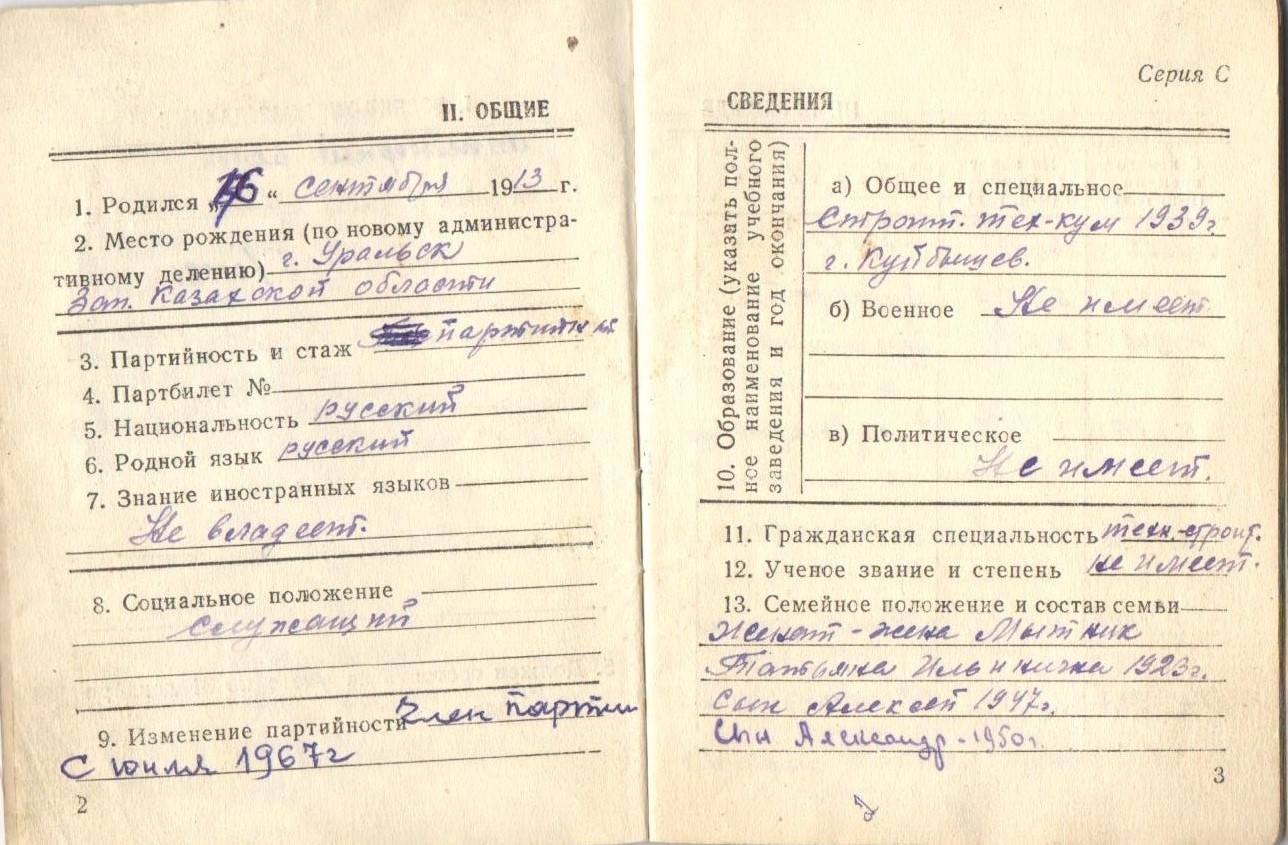 II. ОБЩИЕ
1. Родился „16“ сентября 1913 г.
2. Место рождения (по новому администра-
тивному делению) г. Уральск
Зап. Казахской области
3. Партийность и стаж
4. Партбилет №
5. Национальность русский
6. Родной язык русский
7. Знание иностранных языков
Не владеет.
8. Социальное положение
служащий
9. Изменение партийности Член партии
с июля 1967 г
2
Серия С
СВЕДЕНИЯ
10. Образование (указать пол-
ное наименование учебного
заведения и год окончания)
а) Общее и специальное
Строит. тех-кум 1939 г
г. Куйбышев.
б) Военное Не имеет.
в) Политическое
Не имеет.
11. Гражданская специальность техн-строит.
12. Ученое звание и степень не имеет.
13. Семейное положение и состав семьи
Женат - жена Мытник
Татьяна Ильинична 1923 г.
Сын Алексей 1947 г.
Сын Александр - 1950 г.
3